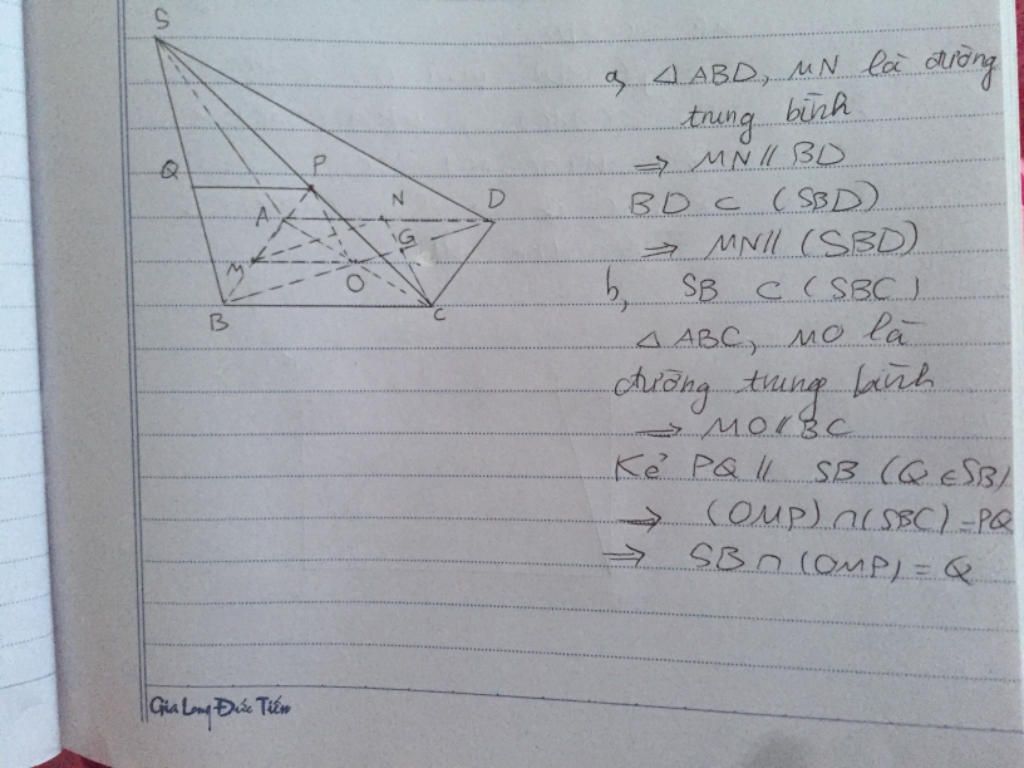 S
Q
P
A
N
D
G
M
O
B
C
a, △ ABD, MN là đường
trung bình
⇒ MN // BD
BD ⊂ (SBD)
⇒ MN // (SBD)
b, SB ⊂ (SBC)
△ ABC, MO là
đường trung bình
⇒ MO // BC
Kẻ PQ // SB (Q ∈ SB)
⇒ (OMP) ∩ (SBC) = PQ
⇒ SB ∩ (OMP) = Q
Gia Long Đức Tiến